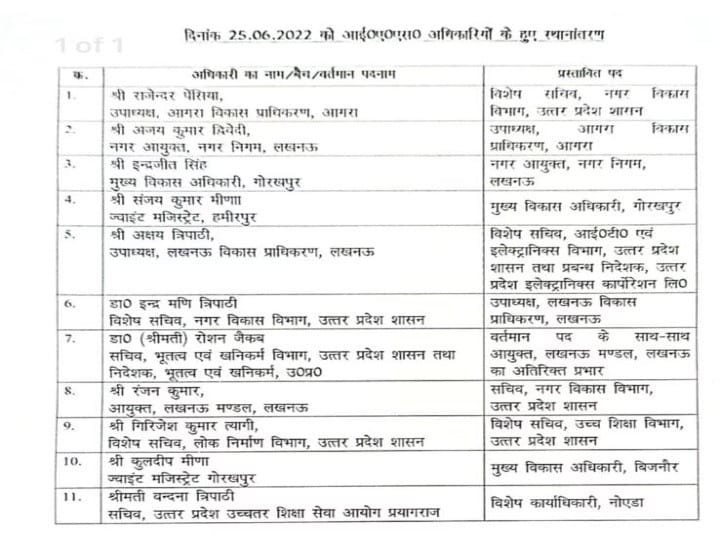 1 of 1
दिनांक 25.06.2022 को आई0ए0एस0 अधिकारियों के हुए स्थानांतरण
क.
अधिकारी का नाम/बैच/वर्तमान पदनाम
प्रस्तावित पद
1.
श्री राजेन्दर पेंसिया,
उपाध्यक्ष, आगरा विकास प्राधिकरण, आगरा
विशेष सचिव, नगर विकास
विभाग, उत्तर प्रदेश शासन
2.
श्री अजय कुमार द्विवेदी,
नगर आयुक्त, नगर निगम, लखनऊ
उपाध्यक्ष, आगरा विकास
प्राधिकरण, आगरा
3.
श्री इन्द्रजीत सिंह
मुख्य विकास अधिकारी, गोरखपुर
नगर आयुक्त, नगर निगम,
लखनऊ
4.
श्री संजय कुमार मीणा
ज्वाइंट मजिस्ट्रेट, हमीरपुर
मुख्य विकास अधिकारी, गोरखपुर
5.
श्री अक्षय त्रिपाठी,
उपाध्यक्ष, लखनऊ विकास प्राधिकरण, लखनऊ
विशेष सचिव, आई0टी0 एवं
इलेक्ट्रानिक्स विभाग, उत्तर प्रदेश
शासन तथा प्रबन्ध निदेशक, उत्तर
प्रदेश इलेक्ट्रानिक्स कार्पोरेशन लि0
6.
डा0 इन्द्र मणि त्रिपाठी
विशेष सचिव, नगर विकास विभाग, उत्तर प्रदेश शासन
उपाध्यक्ष, लखनऊ विकास
प्राधिकरण, लखनऊ
7.
डा0 (श्रीमती) रोशन जैकब
सचिव, भूतत्व एवं खनिकर्म विभाग, उत्तर प्रदेश शासन तथा
निदेशक, भूतत्व एवं खनिकर्म, उ0प्र0
वर्तमान पद के साथ-साथ
आयुक्त, लखनऊ मण्डल, लखनऊ
का अतिरिक्त प्रभार
8.
श्री रंजन कुमार,
आयुक्त, लखनऊ मण्डल, लखनऊ
सचिव, नगर विकास विभाग,
उत्तर प्रदेश शासन
9.
श्री गिरिजेश कुमार त्यागी,
विशेष सचिव, लोक निर्माण विभाग, उत्तर प्रदेश शासन
विशेष सचिव, उच्च शिक्षा विभाग,
उत्तर प्रदेश शासन
10.
श्री कुलदीप मीणा
ज्वाइंट मजिस्ट्रेट गोरखपुर
मुख्य विकास अधिकारी, बिजनौर
11.
श्रीमती वन्दना त्रिपाठी
सचिव, उत्तर प्रदेश उच्चतर शिक्षा सेवा आयोग प्रयागराज
विशेष कार्याधिकारी, नोएडा